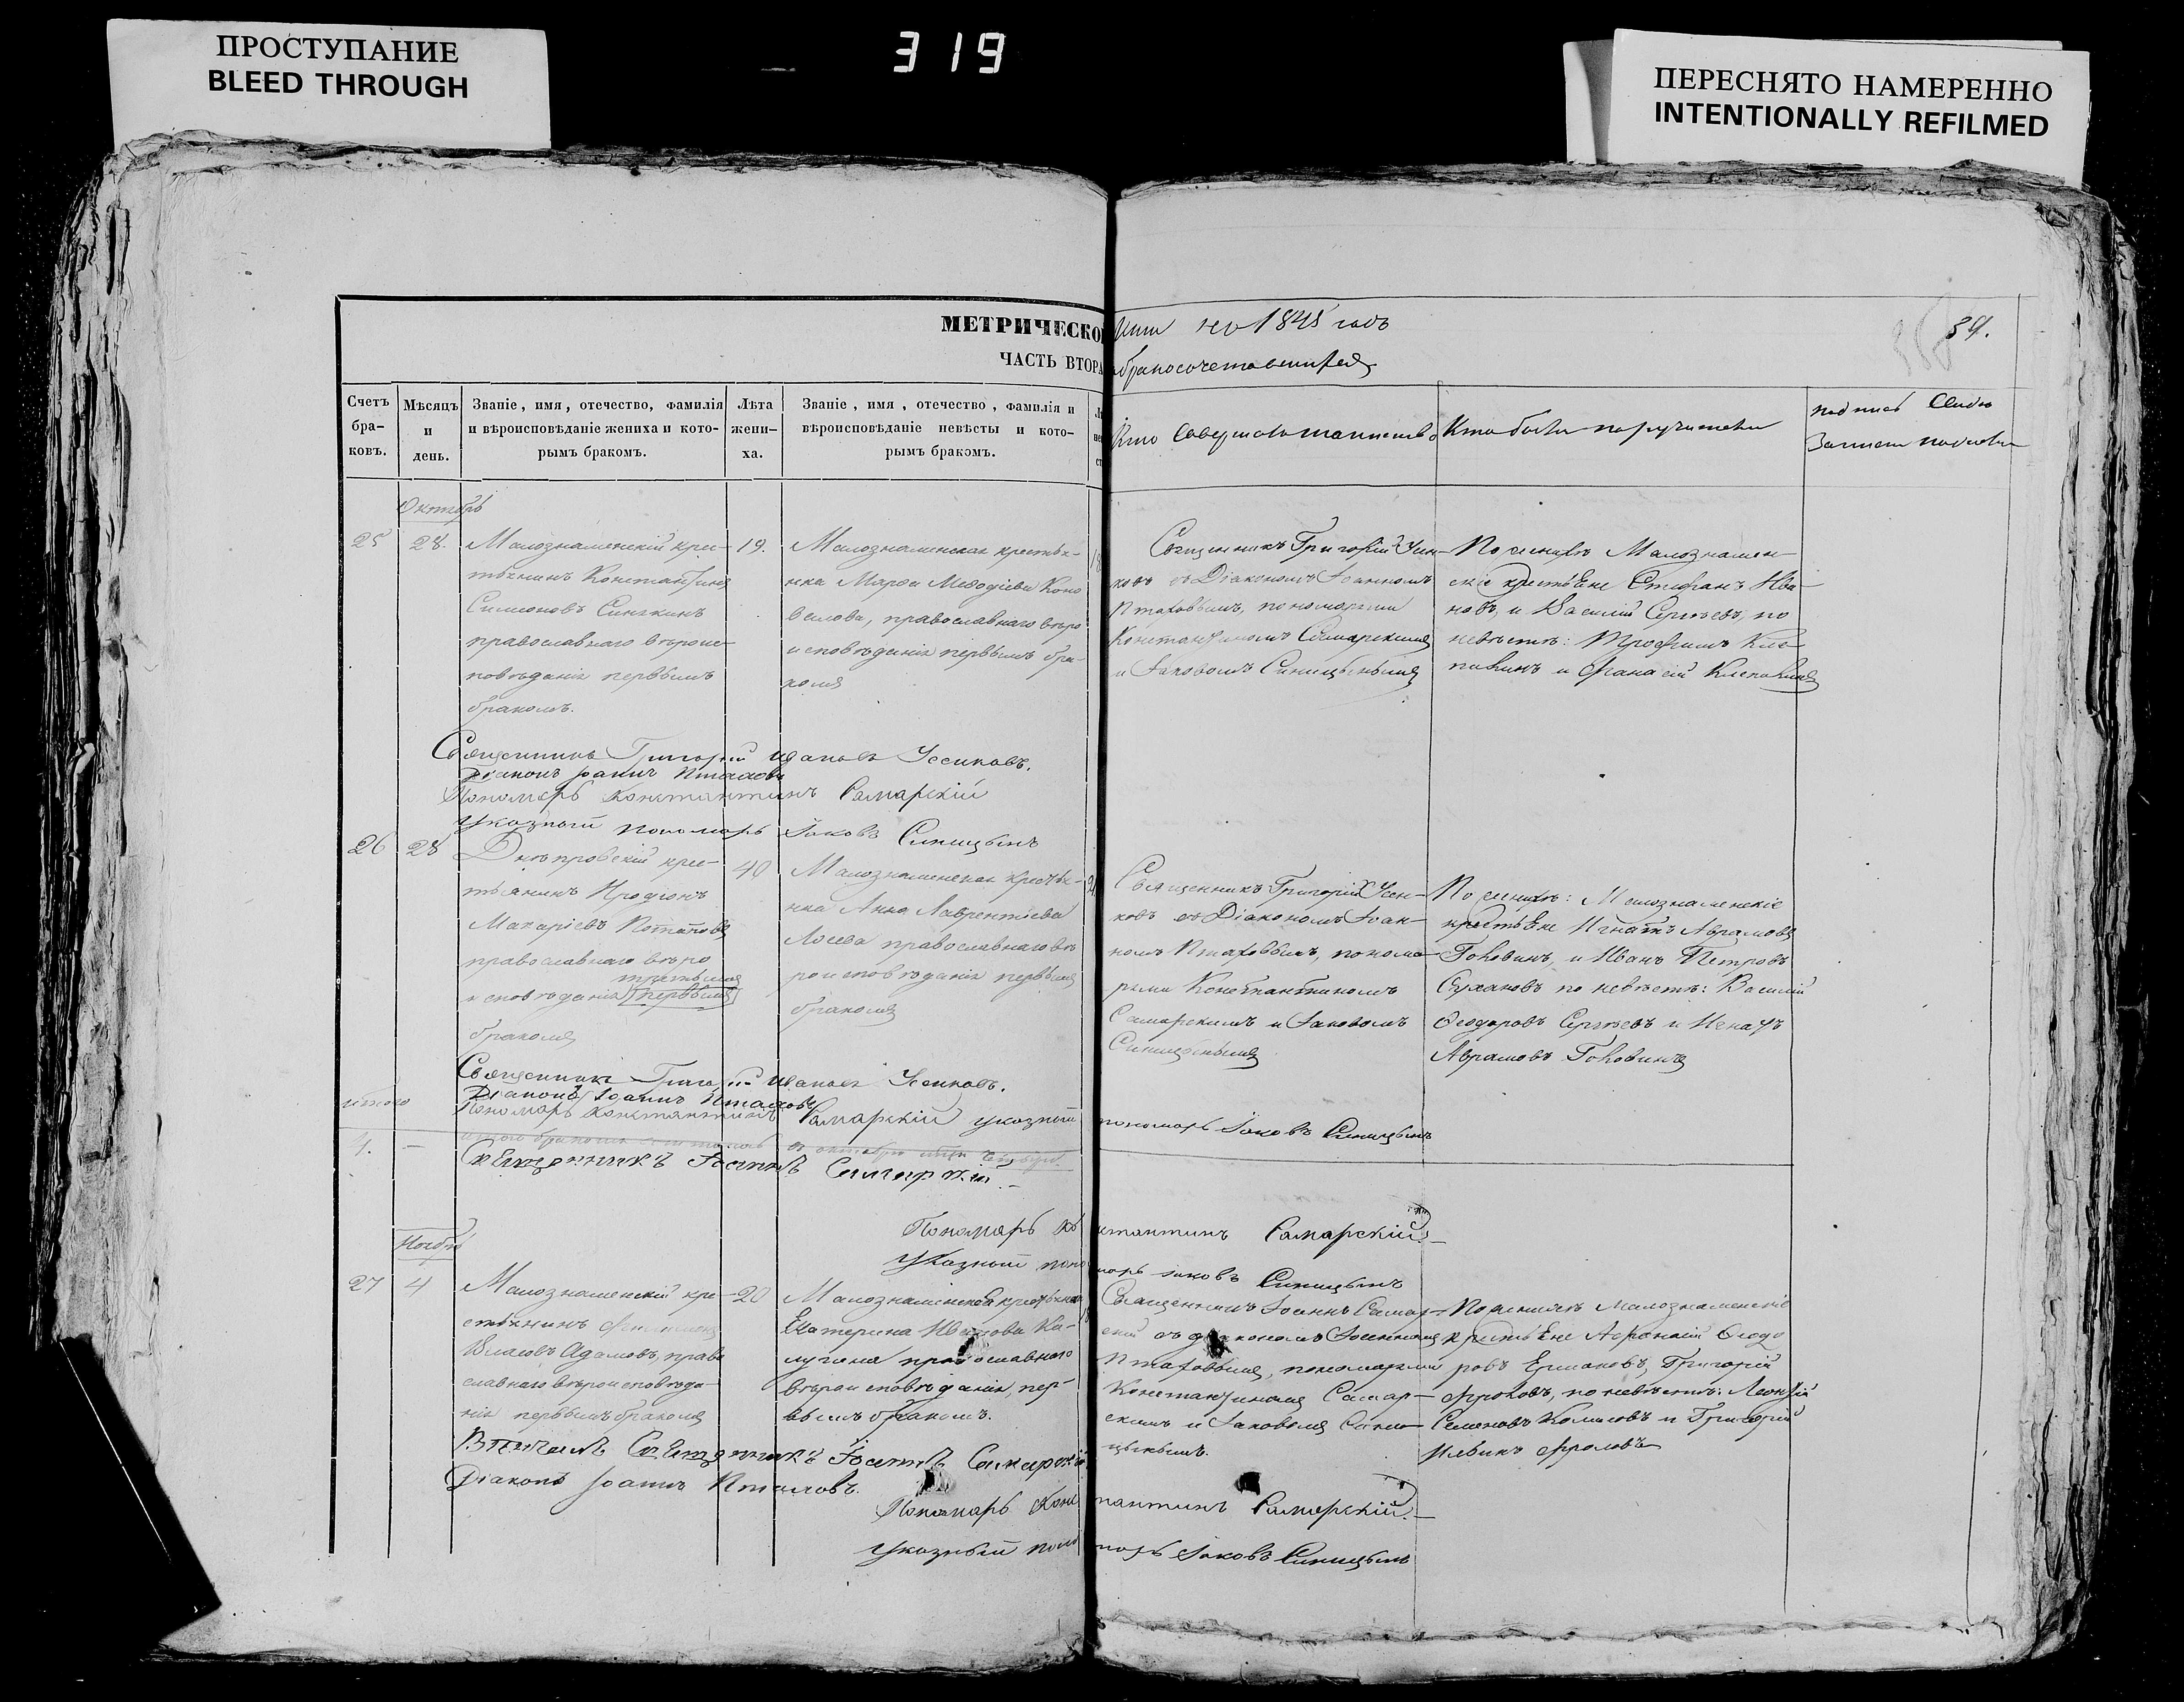 ПРОСТУПАНИЕ
BLEED THROUGH
319
ПЕРЕСНЯТО НАМЕРЕННО
INTENTIONALLY REFILMED
МЕТРИЧЕСКО
ЧАСТЬ ВТОРА
на 1845 годъ
бракосочетавшихся
39.
Счетъ бра-ковъ.
Мѣсяцъ и день.
Званіе, имя, отечество, фамилія и вѣроисповѣданіе жениха и кото-рымъ бракомъ.
Лѣта жени-ха.
Званіе, имя, отечество, фамилія и вѣроисповѣданіе невѣсты и кото-рымъ бракомъ.
Кто совершалъ таинство
Кто были поручители
Октябрь
25
28.
Малознаменскій крес-
тьянинъ Константинъ
Симеоновъ Синякинъ
православнаго вѣроис-
повѣданія первымъ
бракомъ.
19.
Малознаменская крестья-
нка Марѳа Меѳодіева Коно
валова, православнаго вѣро
исповѣданія первымъ бра-
комъ
18
Священникъ Григорій Усен-
ковъ съ Діакономъ Іоанномъ
Птаховымъ, пономарями
Константиномъ Самарскимъ
и Іаковомъ Синицынымъ
По женихѣ Малознамен-
скіе крестьяне Стефанъ Ива-
новъ, и Василій Сергѣевъ, по
невѣстѣ: Трофимъ
и Афанасій
Священникъ Григорій Ивановъ Усенковъ.
Діаконъ Іоаннъ Птаховъ
Пономарь Константинъ Самарскій
Указный пономарь Іаковъ Синицынъ
26
28
Днѣпровскій крес-
тьянинъ Иродіонъ
Макаріевъ Потаповъ
православнаго вѣро
третьимъ
исповѣданія первымъ
бракомъ
40
Малознаменская крестья-
нка Анна Лаврентіева
Лосева православнаго вѣ
роисповѣданія первымъ
бракомъ
Священникъ Григорій Усен-
ковъ съ Діакономъ Іоан-
номъ Птаховымъ, понома-
рями Константиномъ
Самарскимъ и Іаковомъ
Синицынымъ
По женихѣ: Малознаменскіе
крестьяне Игнатъ Абрамовъ
Головинъ, и Иванъ Петровъ
Сухановъ по невѣстѣ: Василій
Ѳеодоровъ Сергѣевъ и Игнатъ
Абрамовъ Головинъ
Священникъ Григорій Ивановъ Усенковъ.
Діаконъ Іоаннъ Птаховъ
Пономарь Константинъ Самарскій указный пономарь Іаковъ Синицынъ
итого
4. —
Священникъ Іоаннъ Самарскій.
Пономарь Константинъ Самарскій.
Указный пономарь Іаковъ Синицынъ
Ноябрь
27
4
Малознаменскій кре-
стьянинъ
Власовъ Адамовъ, право
славнаго вѣроисповѣда-
нія первымъ бракомъ
20
Малознаменская крестьянка
Екатерина Иванова Ка-
лугина православнаго
вѣроисповѣданія, пер-
вымъ бракомъ.
Священникъ Іоаннъ Самар-
скій съ діакономъ Іоанномъ
Птаховымъ, пономарями
Константиномъ Самар-
скимъ и Іаковомъ Сини-
цынымъ.
По женихѣ Малознаменскіе
крестьяне Афанасій Ѳеодо
ровъ Ермаковъ, Григорій
Фроловъ, по невѣстѣ: Леонтій
Семеновъ Комаровъ и Григорій
Ильинъ Фроловъ
Вѣнчалъ Священникъ Іоаннъ Самарскій
Діаконъ Іоаннъ Птаховъ.
Пономарь Константинъ Самарскій.
Указный пономарь Іаковъ Синицынъ